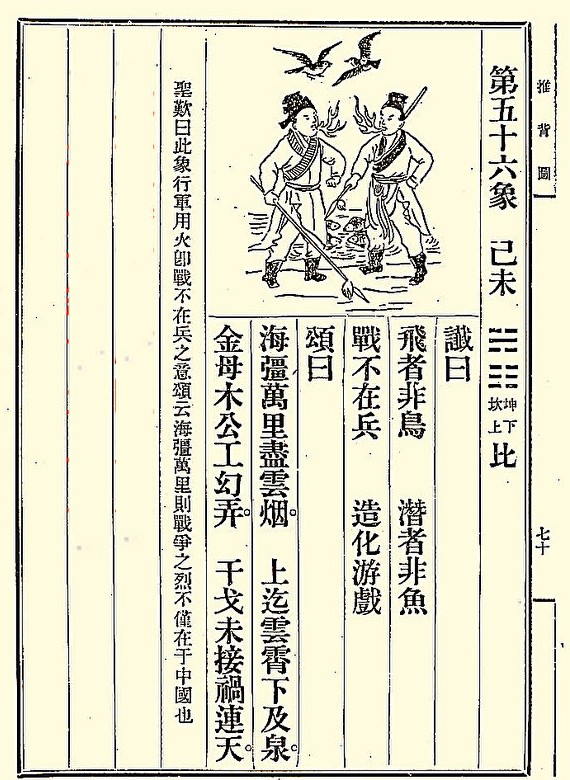 推背圖
七十
第五十六象 己未 坤下坎上 比
讖曰
飛者非鳥 潛者非魚
戰不在兵 造化游戲
頌曰
海彊萬里盡雲烟。 上迄雲霄下及泉。
金母木公工幻弄。 干戈未接禍連天。
聖歎曰此象行軍用火卽戰不在兵之意頌云海彊萬里則戰爭之烈不僅在于中國也